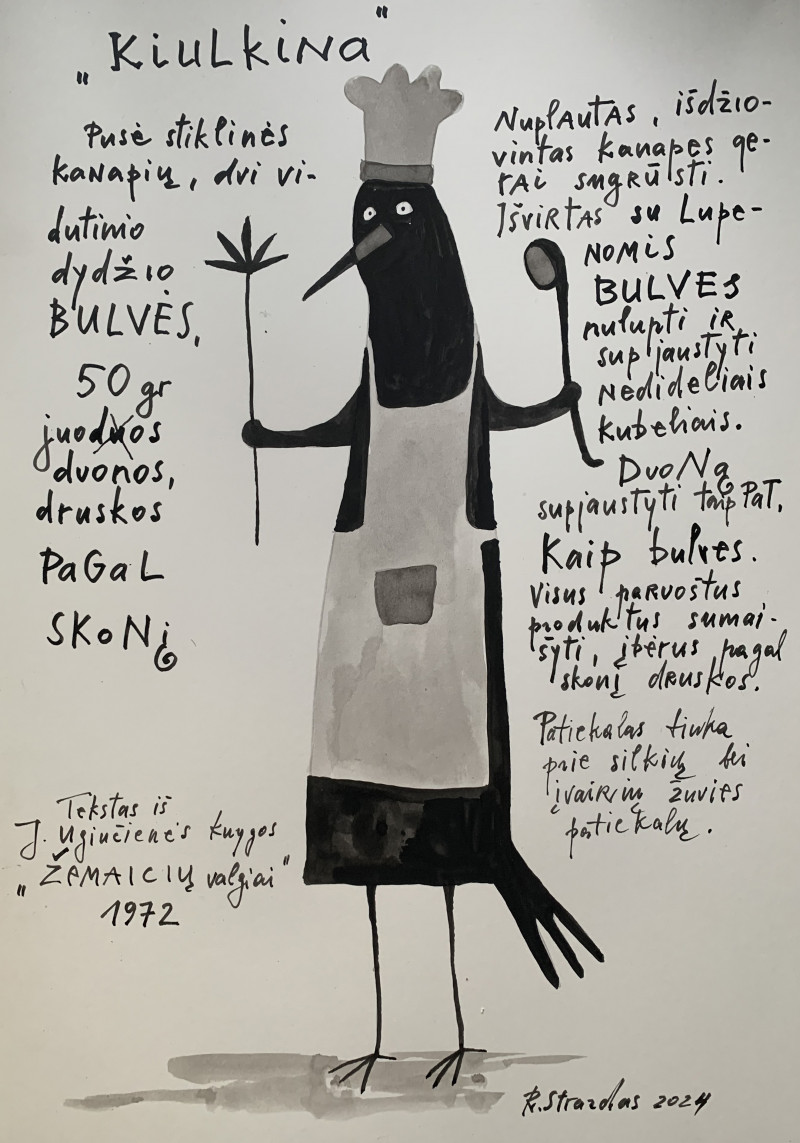 „Kiulkina"
Pusė stiklinės
kanapių, dvi vi-
dutinio
dydžio
BULVĖS,
50 gr
juoduos
dvonos,
druskos
PaGaL
SKoNį
Tekstas iš
J. Ugiučienės knygos
„ŽEMAIČIŲ valgiai"
1972
NuplAutAs, išdžio-
vintas kanapes ge-
rai sugrūsti.
IšvirtAs su Lupe-
NOMIS
BULVES
nulupti iR
supjaustyti
Nedideliais
kubeliais.
DuoNą
supjaustyti taip PaT,
Kaip bulves.
Visus paRuoštus
produktus sumai-
šyti, įbėrus pagal
skonį dRuskos.
Patiekalas tinka
prie silkių bei
įvaiRių žuvies
patiekalų.
R. Strazdas 2024